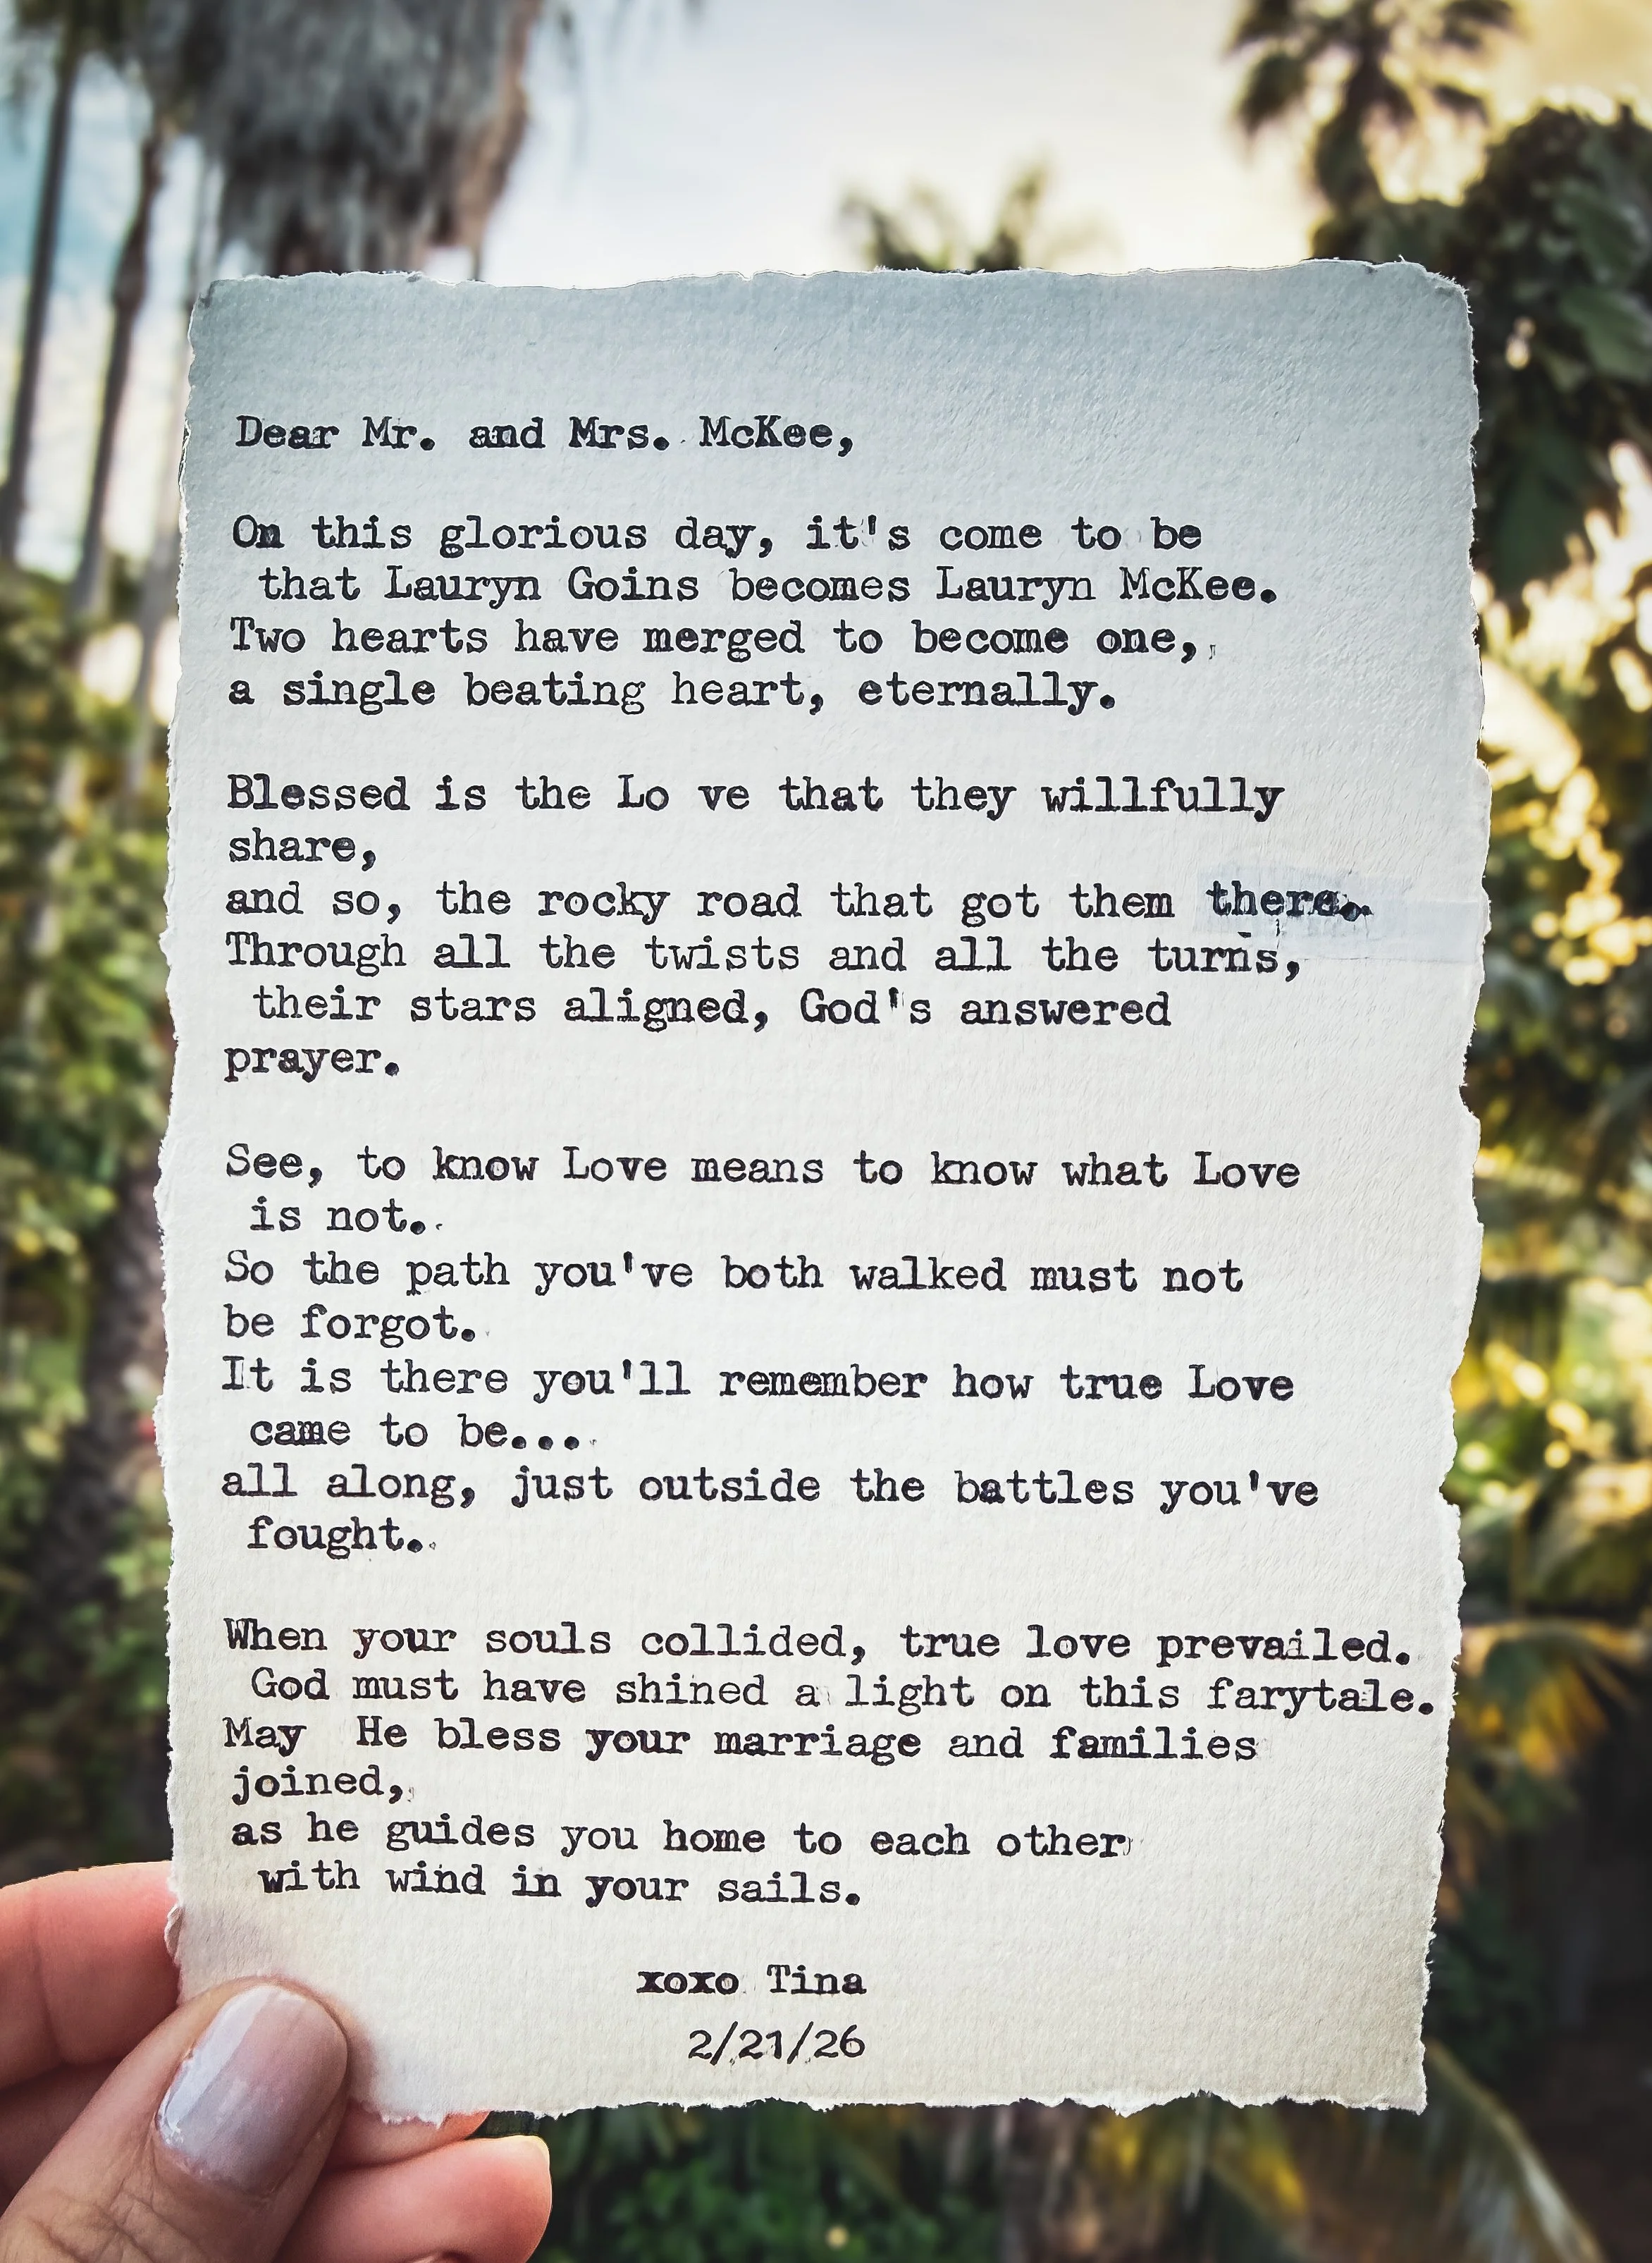 Dear Mr. and Mrs. McKee,
On this glorious day, it's come to be
that Lauryn Goins becomes Lauryn McKee.
Two hearts have merged to become one,
a single beating heart, eternally.
Blessed is the Lo ve that they willfully
share,
and so, the rocky road that got them there.
Through all the twists and all the turns,
their stars aligned, God's answered
prayer.
See, to know Love means to know what Love
is not.
So the path you've both walked must not
be forgot.
It is there you'll remember how true Love
came to be...
all along, just outside the battles you've
fought.
When your souls collided, true love prevailed.
God must have shined a light on this farytale.
May  He bless your marriage and families
joined,
as he guides you home to each other
with wind in your sails.
xoxo Tina
2/21/26